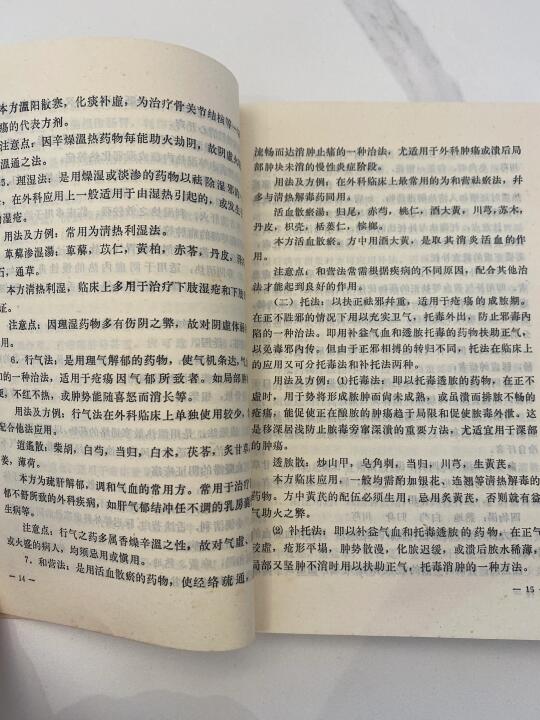 本方溫阳散寒，化痰补虚，为治疗骨关节结核等一
疡的代表方剂。
注意点：因辛燥溫热药物每能助火劫阴，故阴虚
溫通之法。
5．理湿法：是用燥湿或淡渗的药物以祛除湿邪
，在外科应用上一般适用于由湿热引起的，或发生
湿疮。
用法及方例：常用为清热利湿法。
萆薢渗湿汤：萆薢，苡仁，黄柏，赤苓，丹皮，
石，通草。
本方清热利湿，临床上多用于治疗下肢湿疮和下肢
证。
注意点：因理湿药物多有伤阴之弊，故对阴虚体
6．行气法：是用理气解郁的药物，使气机条达，气
的一种治法，适用于疮疡因气郁所致者。如局部肿
，不红不热，或肿势能随喜怒而消长等。
用法及方例：行气法在外科临床上单独使用较少，
配合他法应用。
逍遙散：柴胡，白芍，当归，白术，茯苓，炙甘草，
姜，薄荷。
本方为疏肝解郁，调和气血的常用方。常用于治疗
郁不舒所致的外科疾病，如肝气郁结冲任不调的乳房
生病等。
注意点：行气之药多属香燥辛溫之性，故对气虚、
或火盛的病人，均须忌用或慎用。
7．和营法：是用活血散瘀的药物，使经络疏通，
— 14 —
流畅而达消肿止痛的一种治法，尤适用于外科肿疡或溃后局
部肿块未消的慢性炎症阶段。
用法及方例：在外科临床上最常用的为和营祛瘀法，幷
多与清热解毒药同用。
活血散瘀汤：归尾，赤芍，桃仁，酒大黄，川芎，苏木，
丹皮，枳壳，栝蒌仁，槟榔。
本方活血散瘀。方中用酒大黄，是取其消炎活血的作
用。
注意点：和营法常需根据疾病的不同原因，配合其他治
法才能起到良好的作用。
（二）托法：以扶正祛邪幷重，适用于疮疡的成脓期。
在正不胜邪的情况下用以充实卫气，托毒外出，防止邪毒内
陷的一种治法。即用补益气血和透脓托毒的药物扶助正气，
以免毒邪内传。但由于正邪相搏的转归不同，托法在临床上
的应用又可分托毒法和补托法两种。
用法及方例：⑴托毒法：即以托毒透脓的药物，在正不
虚时，用于势将形成脓肿而尚未成熟，或虽溃而排脓不畅的
疮疡，能促使正在酿脓的肿疡趋于局限和促使脓毒外泄。这
是移深居浅防止脓毒旁窜深溃的重要方法，尤适宜用于深部
的肿疡。
透脓散：炒山甲，皂角刺，当归，川芎，生黄芪。
本方临床应用，一般均需酌加银花、连翘等清热解毒的
药物。方中黄芪的配伍必须生用，忌用炙黄芪，否则就有益
气助火之弊。
⑵ 补托法：即以补益气血和托毒透脓的药物，在正
交虚，疮形平塌，肿势散漫，化脓迟缓，或溃后脓水稀薄，
局部又坚肿不消时用以扶助正气，托毒消肿的一种方法。
— 15